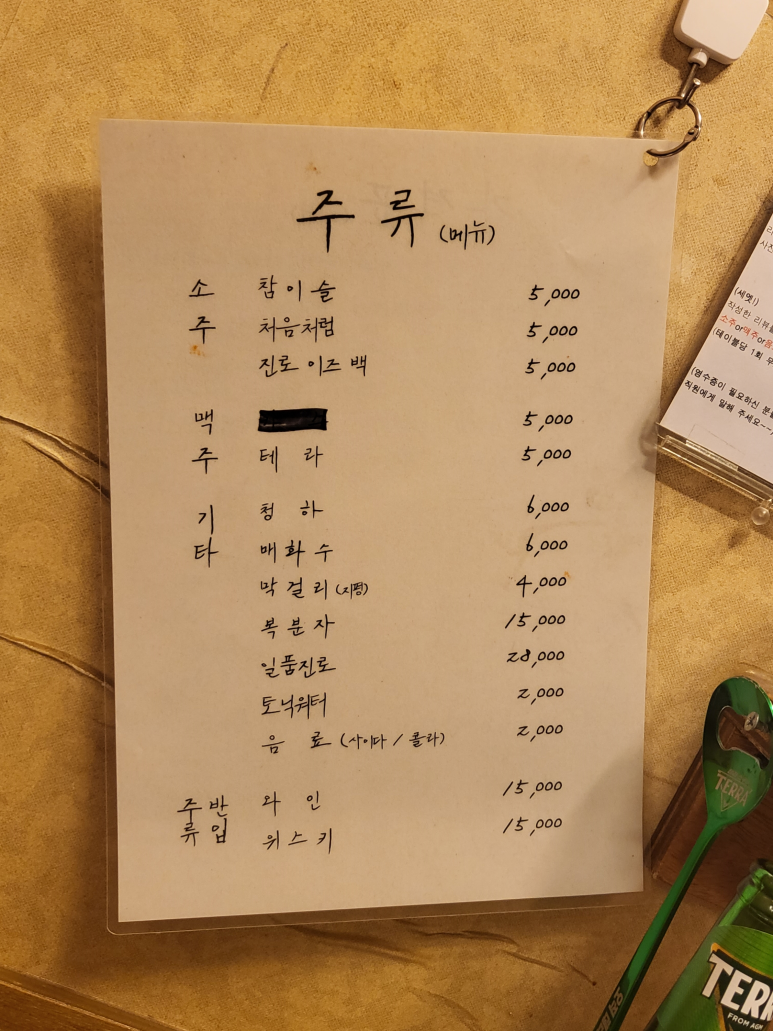 주류 (메뉴)
소 참이슬 5,000
주 처음처럼 5,000
진로 이즈 백 5,000
맥 5,000
주 테라 5,000
기 청하 6,000
타 매화수 6,000
막걸리 (지평) 4,000
복분자 15,000
일품진로 28,000
토닉워터 2,000
음료 (사이다 / 콜라) 2,000
주반 와인 15,000
류입 위스키 15,000
(세멧!)
작성한 리뷰를
소주or맥주or음
(테이블당 1회 무
(영수증이 필요하신 분
직원에게 말해 주세요~~
TERRA
TERR
FROM AG